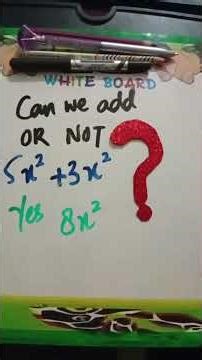 WHITE BOARD
Can we add
OR NOT ?
5x² + 3x²
Yes 8x²